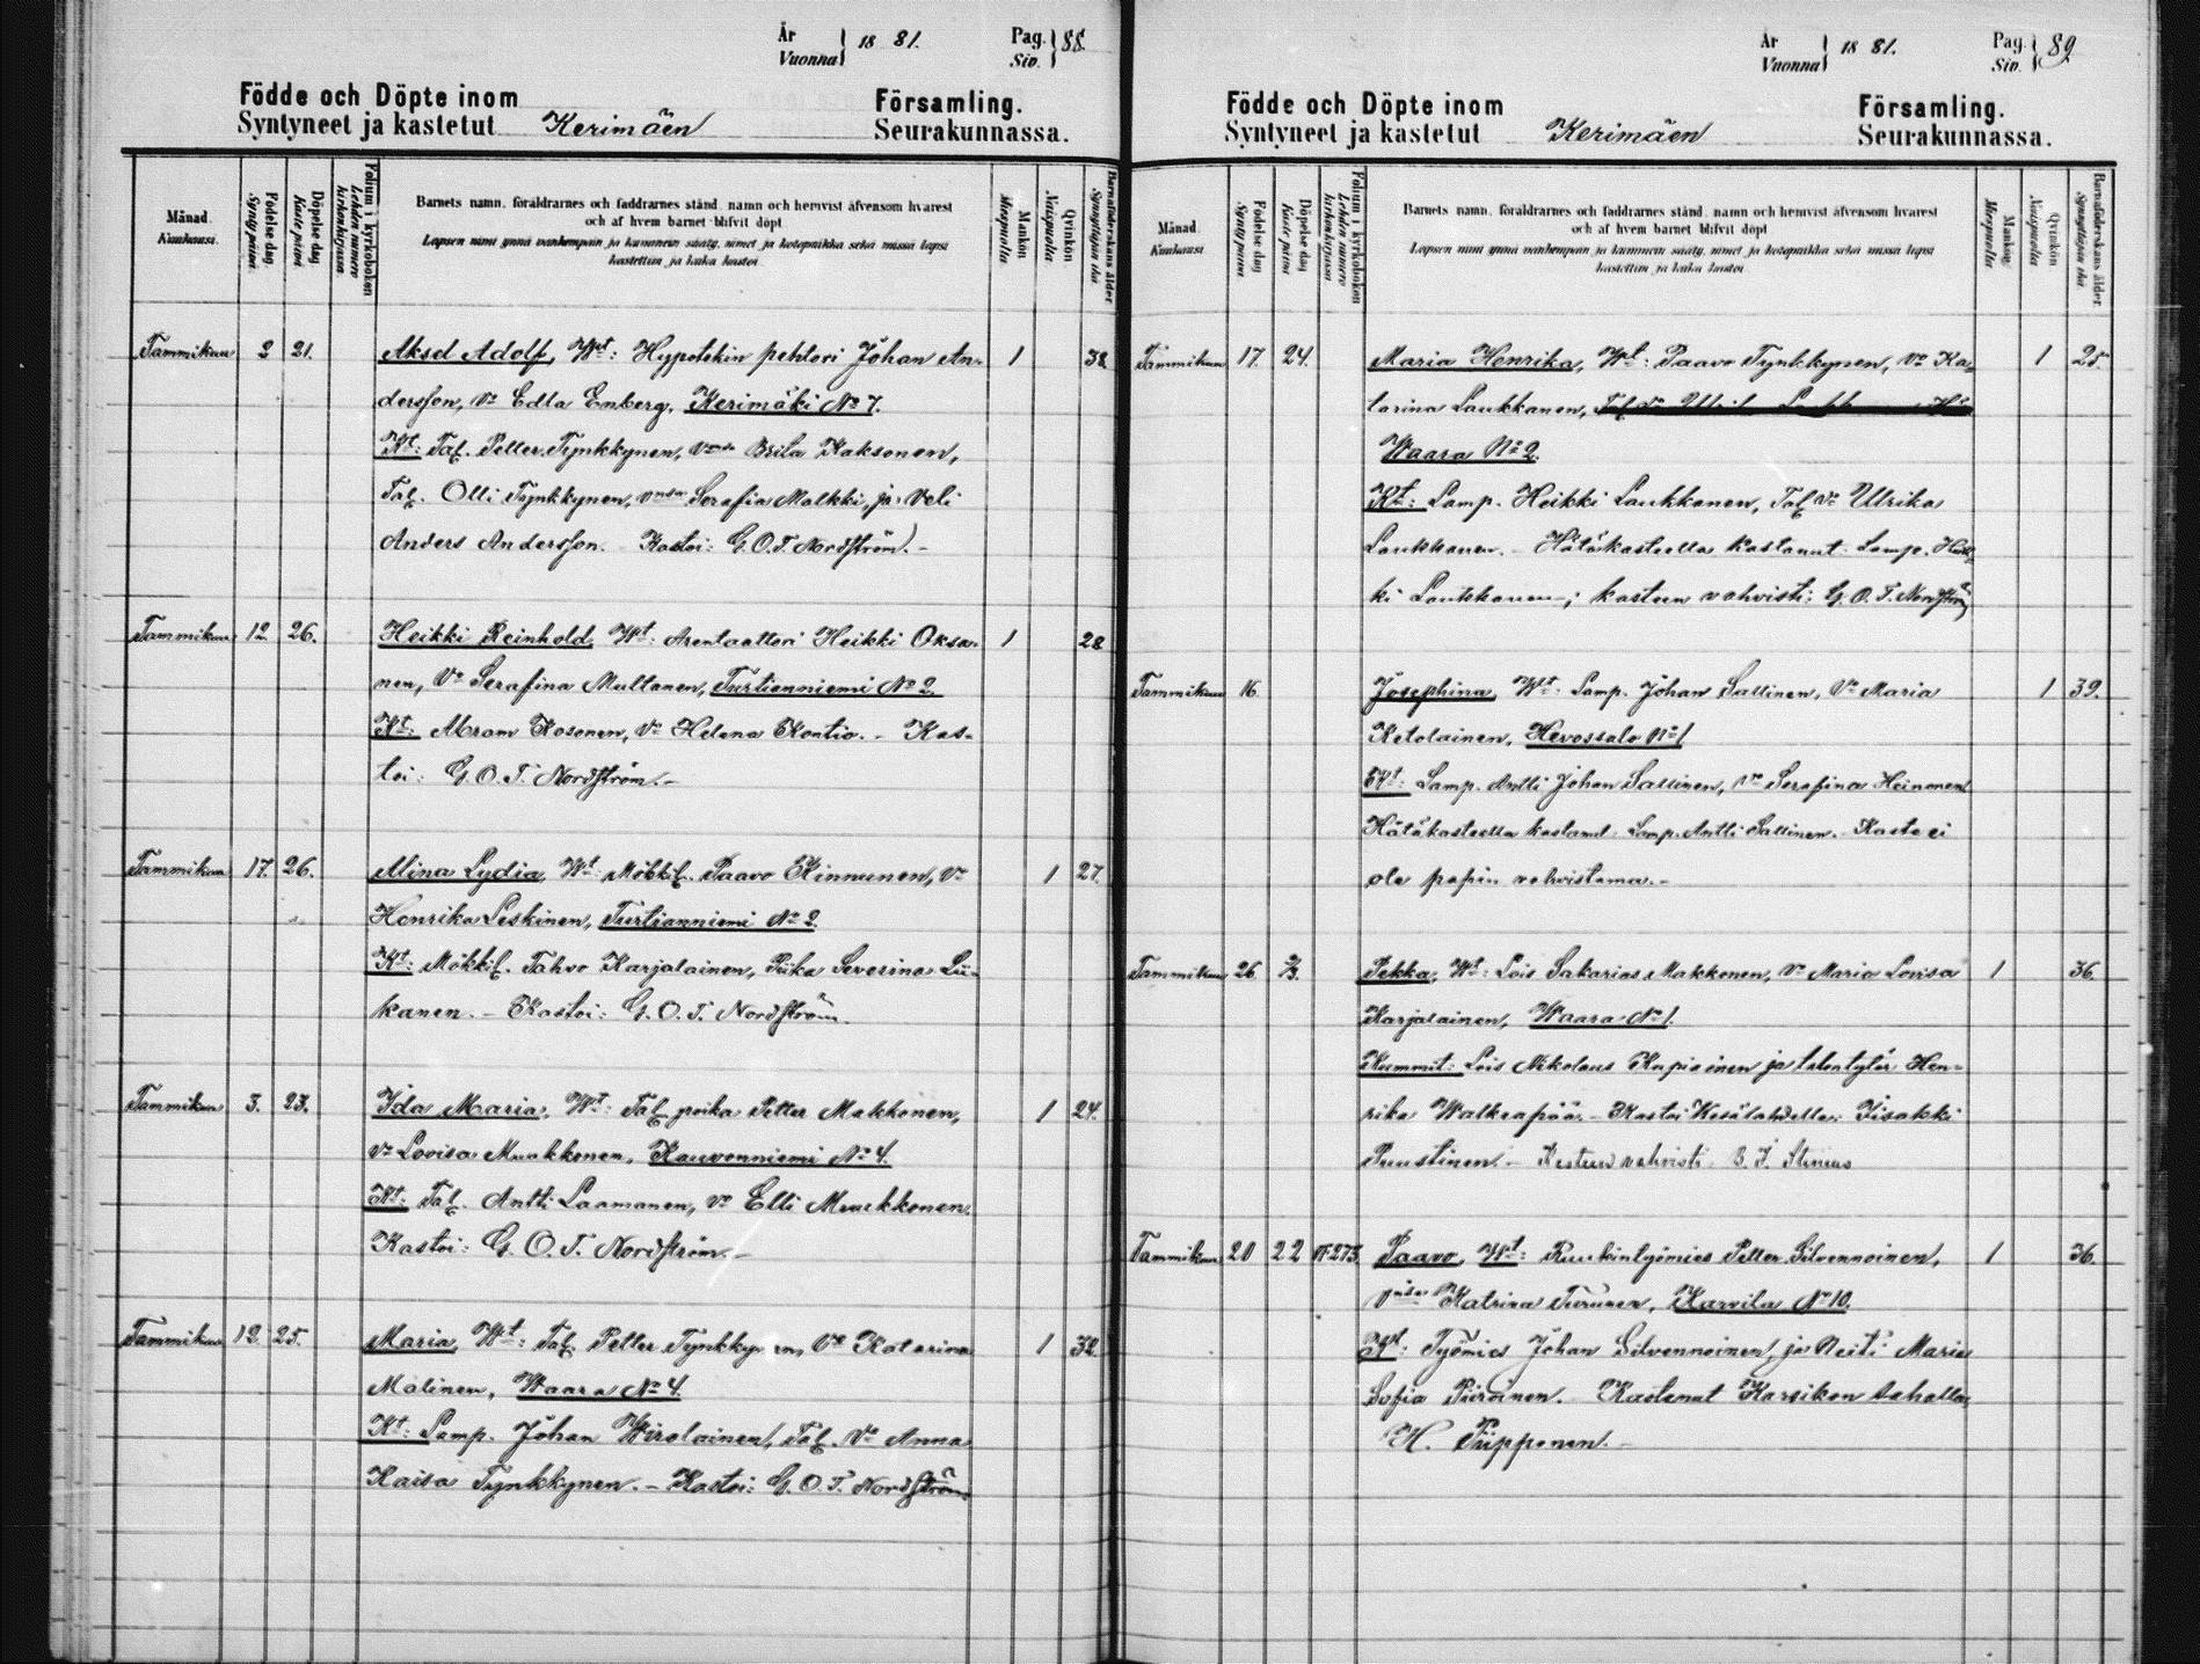 År
Vuonna } 18 81. Pag.
Siv. } 88.
Födde och Döpte inom Församling.
Syntyneet ja kastetut Kerimäen Seurakunnassa.
Månad. Kuukausi.
Födelse dag. Synty päivä
Döpelse dag Kaste päivä
Folium i kyrkoboken Lehden numero kirkonkirjassa
Barnets namn, föräldrarnes och faddrarnes stånd, namn och hemvist äfvensom hvarest
och af hvem barnet blifvit döpt
Lapsen nimi ynnä vanhempain ja kummein sääty, nimet ja kotopaikka sekä missä lapsi
kastettiin ja kuka kastoi
Mankön Miespuolia
Qvinkön Naispuolia
Barnaföderskans ålder Synnyttäjän ikä
Tammikuu 2 21. Aksel Adolf, Wt: Hypotekin pehtori Johan An- 1 38
dersson, Vo Edla Enberg, Kerimäki No 7.
Kt: Tal. Petter Tynkkynen, vmsa Brita Kaksonen,
Tal. Olli Tynkkynen, vmsa Serafia Malkki, ja Veli
Anders Andersson. Kastoi: G.O.T. Nordström. -
Tammikuu 12 26. Heikki Reinhold, Wt: Arentaattori Heikki Oksa- 1 28
nen, Vo Serafina Multanen, Turtianniemi No 2.
Kt: Abram Kosonen, Vo Helena Kontio. - Kas-
toi: G.O.T. Nordström. -
Tammikuu 17. 26. Miina Lydia, Wt: Mökkil. Paavo Kinnunen, Vo 1 27.
Henrika Leskinen, Turtianniemi No 2.
Kt: Mökkil. Tahvo Karjalainen, Piika Severina Lii-
kanen. - Kastoi: G.O.T. Nordström.
Tammikuu 3. 23. Ida Maria, Wt: Tal. poika Petter Makkonen, 1 24.
Vo Lovisa Muukkonen, Kauvonniemi No 4.
Kt: Tal. Antti Laamanen, Vo Elli Muukkonen.
Kastoi: G.O.T. Nordström. -
Tammikuu 12. 25. Maria, Wt: Tal. Petter Tynkkynen, Vo Katarina 1 32.
Malinen, Waara No 4.
Kt: Lamp. Johan Wirolainen, Tal. Vo Anna
Kaisa Tynkkynen. - Kastoi: G.O.T. Nordström
År
Vuonna } 18 81. Pag.
Siv. } 89
Födde och Döpte inom Församling.
Syntyneet ja kastetut Kerimäen Seurakunnassa.
Månad. Kuukausi.
Födelse dag Synty päivä
Döpelse dag Kaste päivä
Folium i kyrkoboken Lehden numero kirkonkirjassa
Barnets namn, föräldrarnes och faddrarnes stånd, namn och hemvist äfvensom hvarest
och af hvem barnet blifvit döpt
Lapsen nimi ynnä vanhempain ja kummein sääty, nimet ja kotopaikka sekä missä lapsi
kastettiin ja kuka kastoi
Mankön Miespuolia
Qvinkön Naispuolia
Barnaföderskans ålder Synnyttäjän ikä
Tammikuu 17. 24. Maria Henrika, Wt: Paavo Tynkkynen, Vo Ka- 1 25.
tarina Laukkanen,
Waara No 2.
Kt: Lamp. Heikki Laukkanen, Tal. Vo Ulrika
Laukkanen. - Hätäkasteella kastanut Lamp. Heik-
ki Laukkanen; kasteen vahvisti: G.O.T. Nordström
Tammikuu 16. Josephina, Wt: Lamp. Johan Sallinen, Vo Maria 1 39.
Ketolainen, Hevossalo No 1
Kt: Lamp. Antti Johan Sallinen, Vo Serafina Heinonen
Hätäkasteella kastanut Lamp. Antti Sallinen. Kaste ei
ole papin vahvistama. -
Tammikuu 26. 2/3. Pekka, Wt: Lois Sakarias Makkonen, Vo Maria Lovisa 1 36.
Karjalainen, Waara No 1.
Kummit: Lois Nikolaus Kupiainen ja talontytär Hen-
rika Walkeapää. - Kastoi Kesälahdella: Iisakki
Puustinen. - Kasteen vahvisti
Tammikuu 20 22 273 Paavo, Wt: Ruukintyömies Petter Silvennoinen, 1 36.
vmsa Katrina Turunen, Karvila No 10.
Kt: Työmies Johan Silvennoinen, ja Neiti Maria
Sofia Piiroinen. Kastanut Karsikon sahalla
H. Piipponen. -